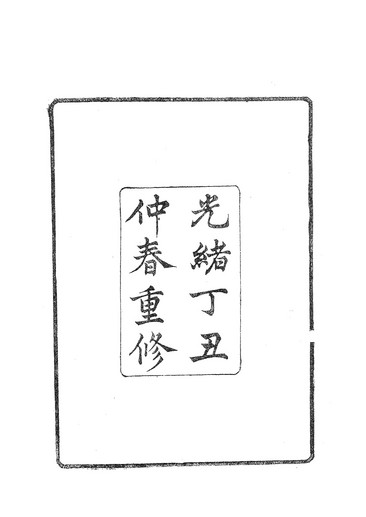 光緒丁丑
仲春重修